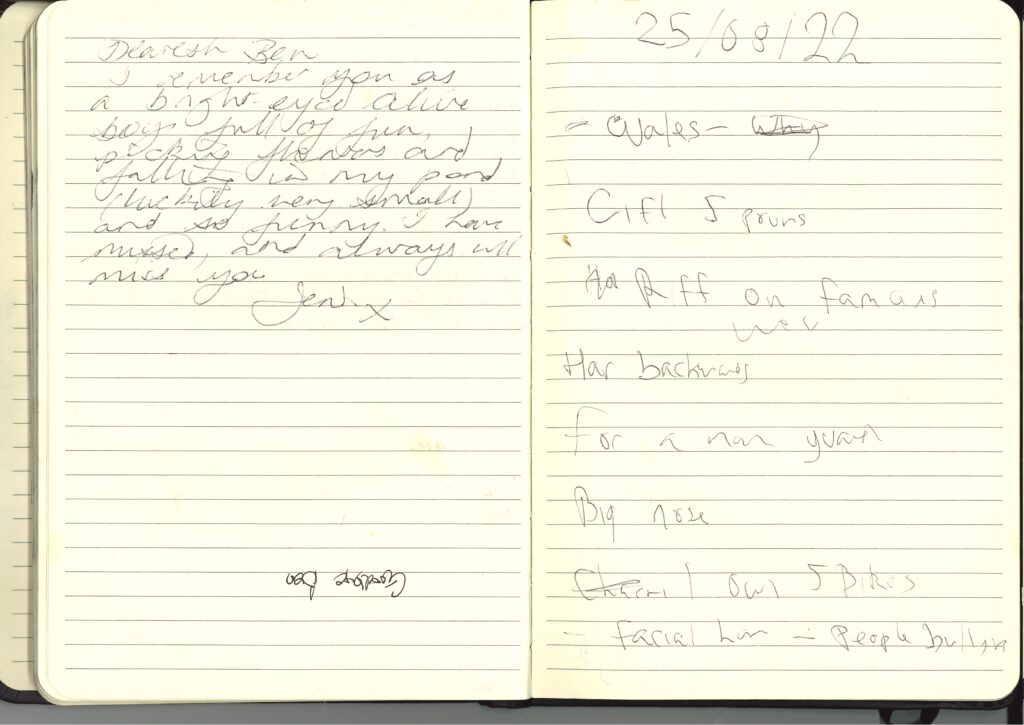 Dearest Ben
I remember you as
a bright-eyed alive
boy, full of fun,
picking flowers and
falling in my pond
(luckily very small)
and so funny. I have
missed, and always will
miss you
Jeni x
Goodbye Ben
25/08/22
- Wales - Why
5
Riff on famous
Hat backwards
For a man
Big nose
I own 5 Bikes
- Facial hair - People